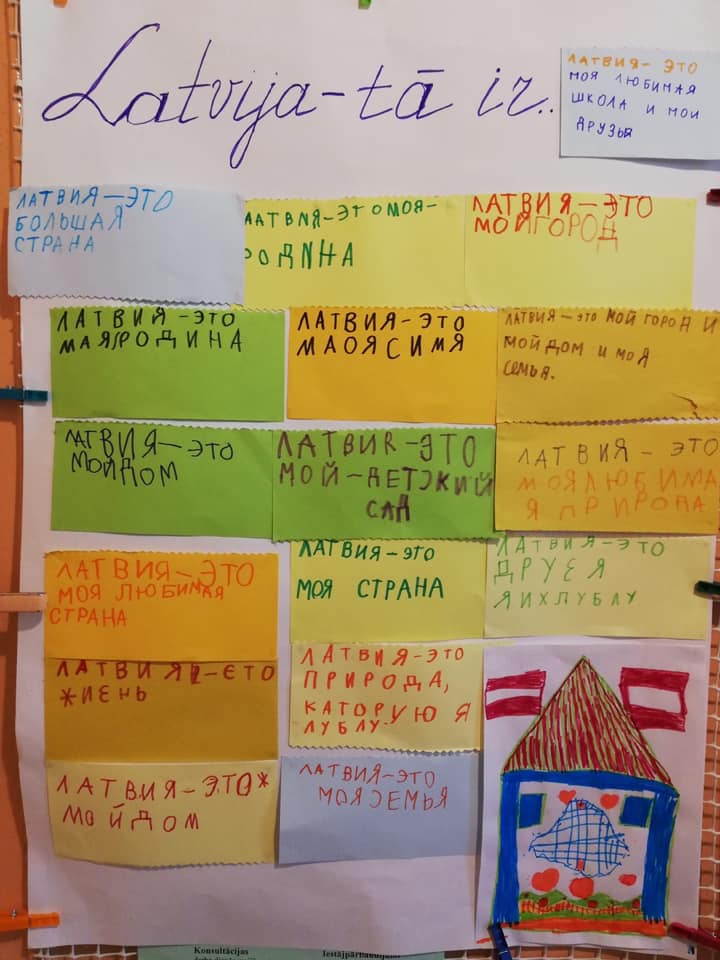 Latvija-tā ir..
ЛАТВИЯ- ЭТО
МОЯ ЛЮБИМАЯ
ШКОЛА И МОИ
ДРУЗЬЯ
ЛАТВИЯ-ЭТО
БОЛЬШАЯ
СТРАНА
ЛАТВИЯ-ЭТОМОЯ-
РОДИНА
ЛАТВИЯ-ЭТО
МОЙГОРОД
ЛАТВИЯ-ЭТО
МАЯРОДИНА
ЛАТВИЯ-ЭТО
МАОЯСИМЯ
ЛАТВИЯ-ЭТО МОЙ ГОРОД И
МОЙ ДОМ И МОЯ
СЕМЬЯ.
ЛАТВИЯ-ЭТО
МОЙДОМ
ЛАТВИЯ-ЭТО
МОЙ-ДЕТСКИЙ
САД
ЛАТВИЯ- ЭТО
МОЯЛЮБИМА
Я ПРИРОДА
ЛАТВИЯ-ЭТО
МОЯ ЛЮБИМАЯ
СТРАНА
ЛАТВИЯ-ЭТО
МОЯ СТРАНА
ЛАТВИЯ-ЭТО
ДРУЗЯ
ЯИХЛУБЛУ
ЛАТВИЯ-ЄТО
ЖИЗНЬ
ЛАТВИЯ-ЭТО
ПРИРОДА,
КАТОРУЮ Я
ЛУБЛУ.
ЛАТВИЯ-ЭТО*
МОЙДОМ
ЛАТВИЯ-ЭТО
МОЯСЕМЬЯ
Konsultācijas